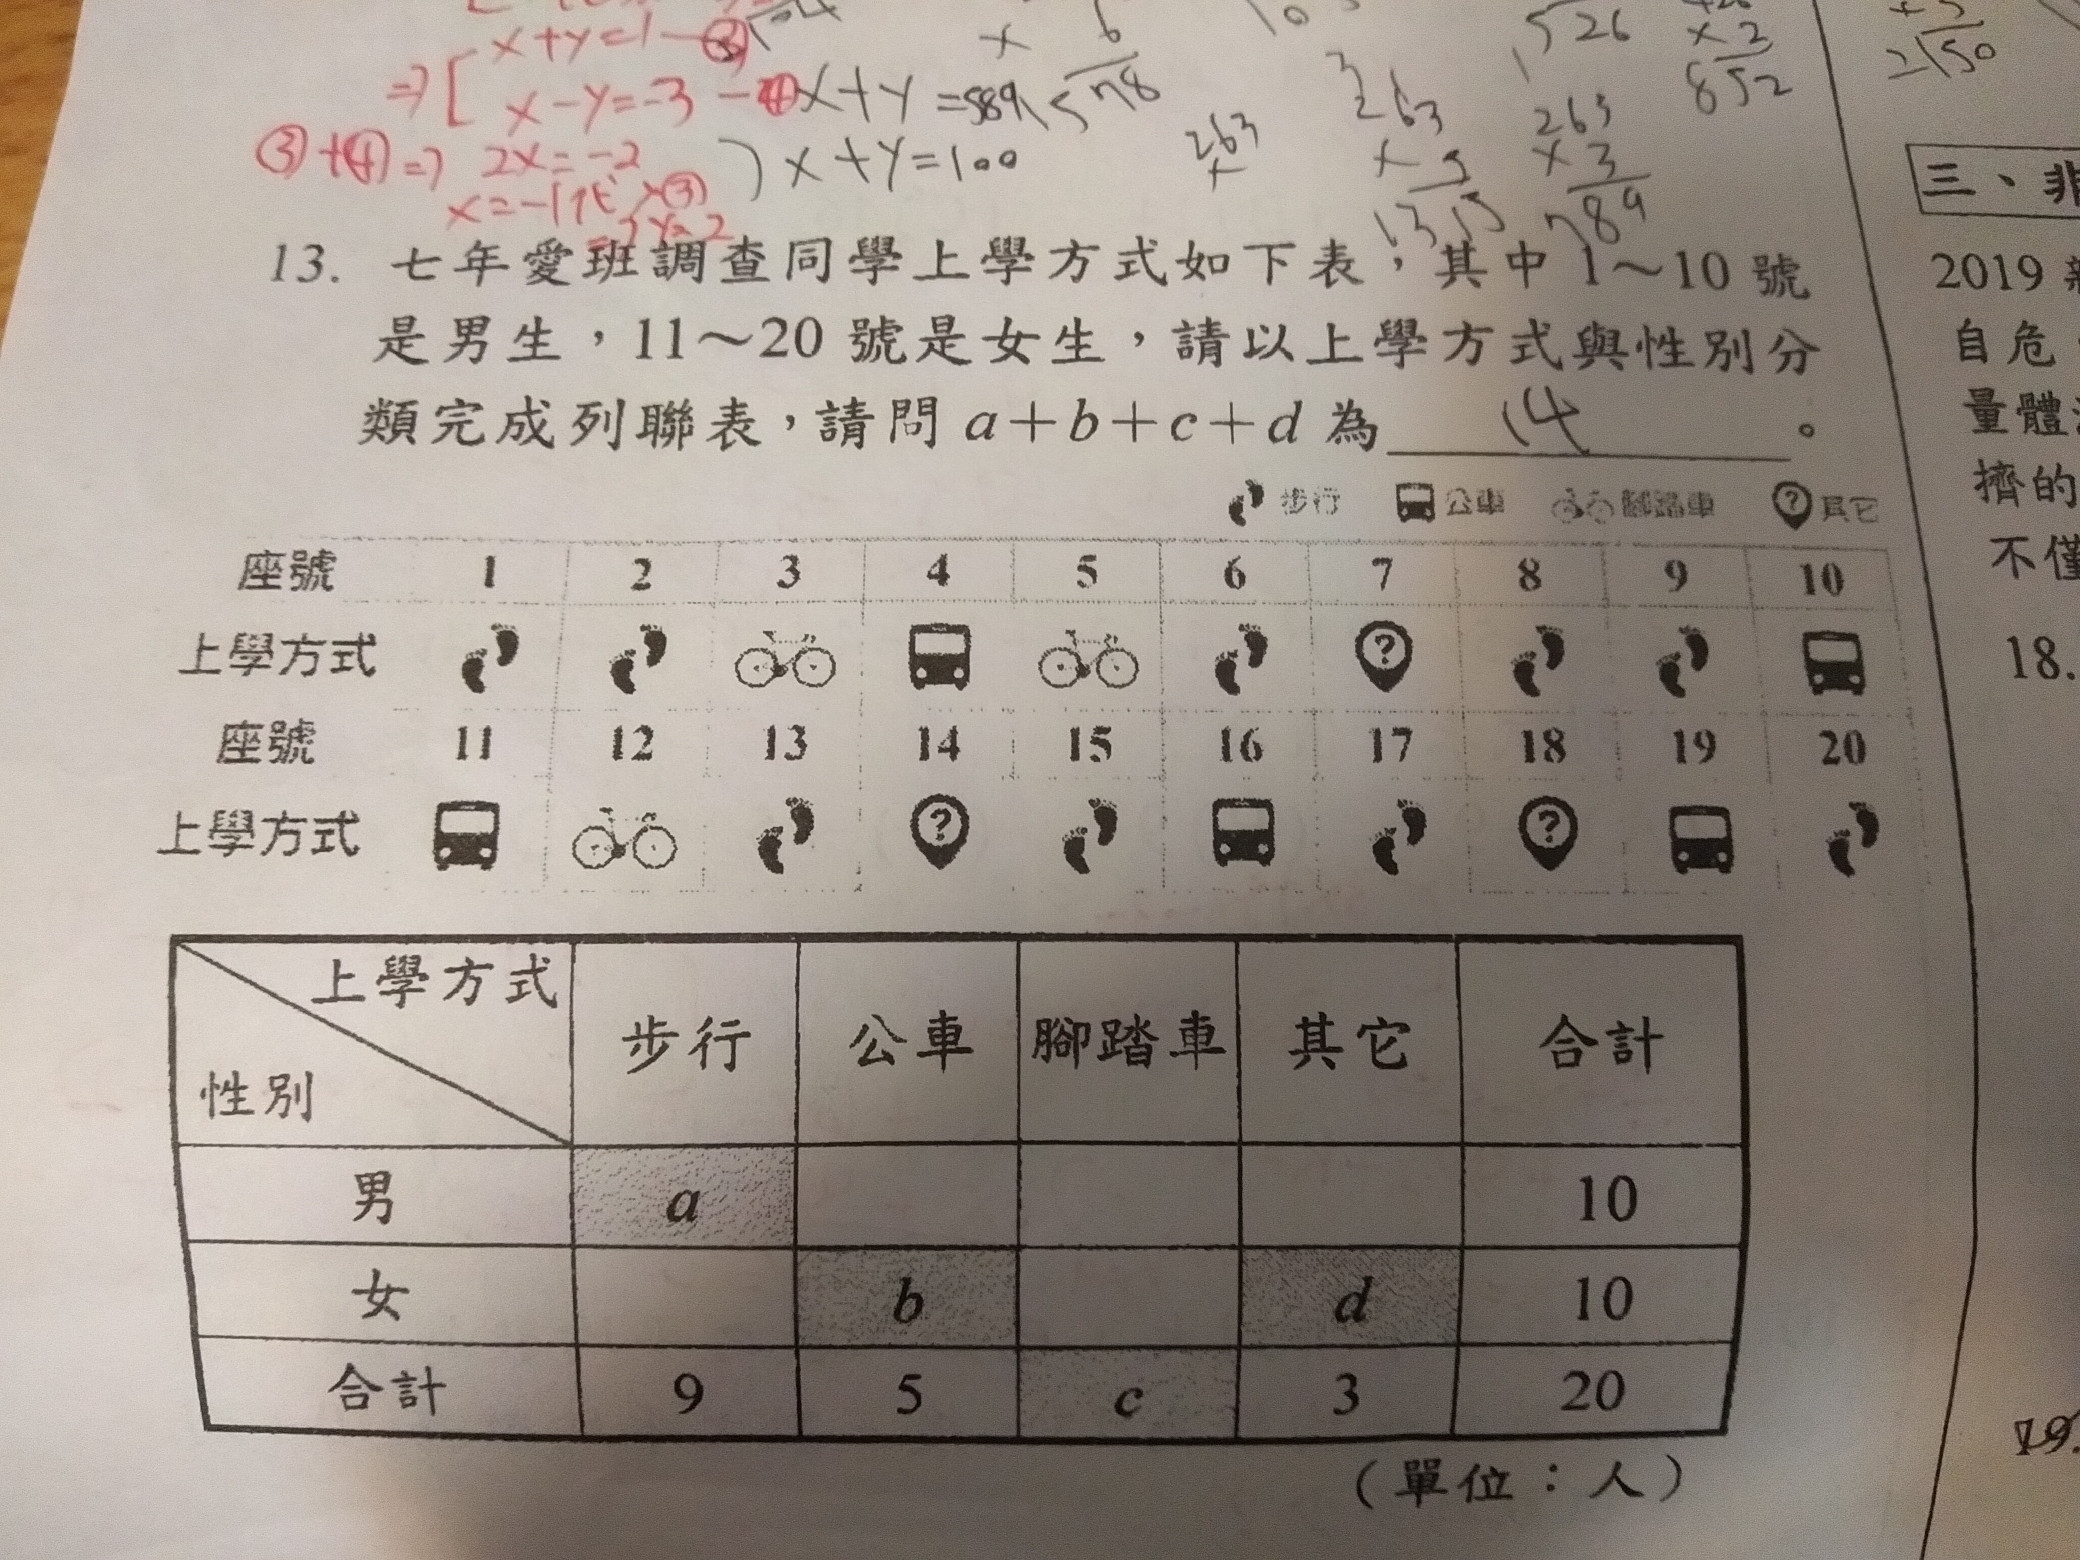 x+y=1-③
⇒[ x-y=-3-④ x+y=589
③+④⇒ 2x=-2 ) x+y=100
6
578
263
×
3
263
× 5
1315
263
× 3
789
526
× 2
852
2150
13. 七年愛班調查同學上學方式如下表，其中 1～10 號
是男生，11～20 號是女生，請以上學方式與性別分
類完成列聯表，請問 a＋b＋c＋d 為 14 。
步行 公車 腳踏車 其它
座號 1 2 3 4 5 6 7 8 9 10
上學方式 ? 
座號 11 12 13 14 15 16 17 18 19 20
上學方式 ? ?
上學方式
性別 步行 公車 腳踏車 其它 合計
男 a 10
女 b d 10
合計 9 5 c 3 20
（單位：人）
三、非
2019
自危
量體
擠的
不僅
18.
19.